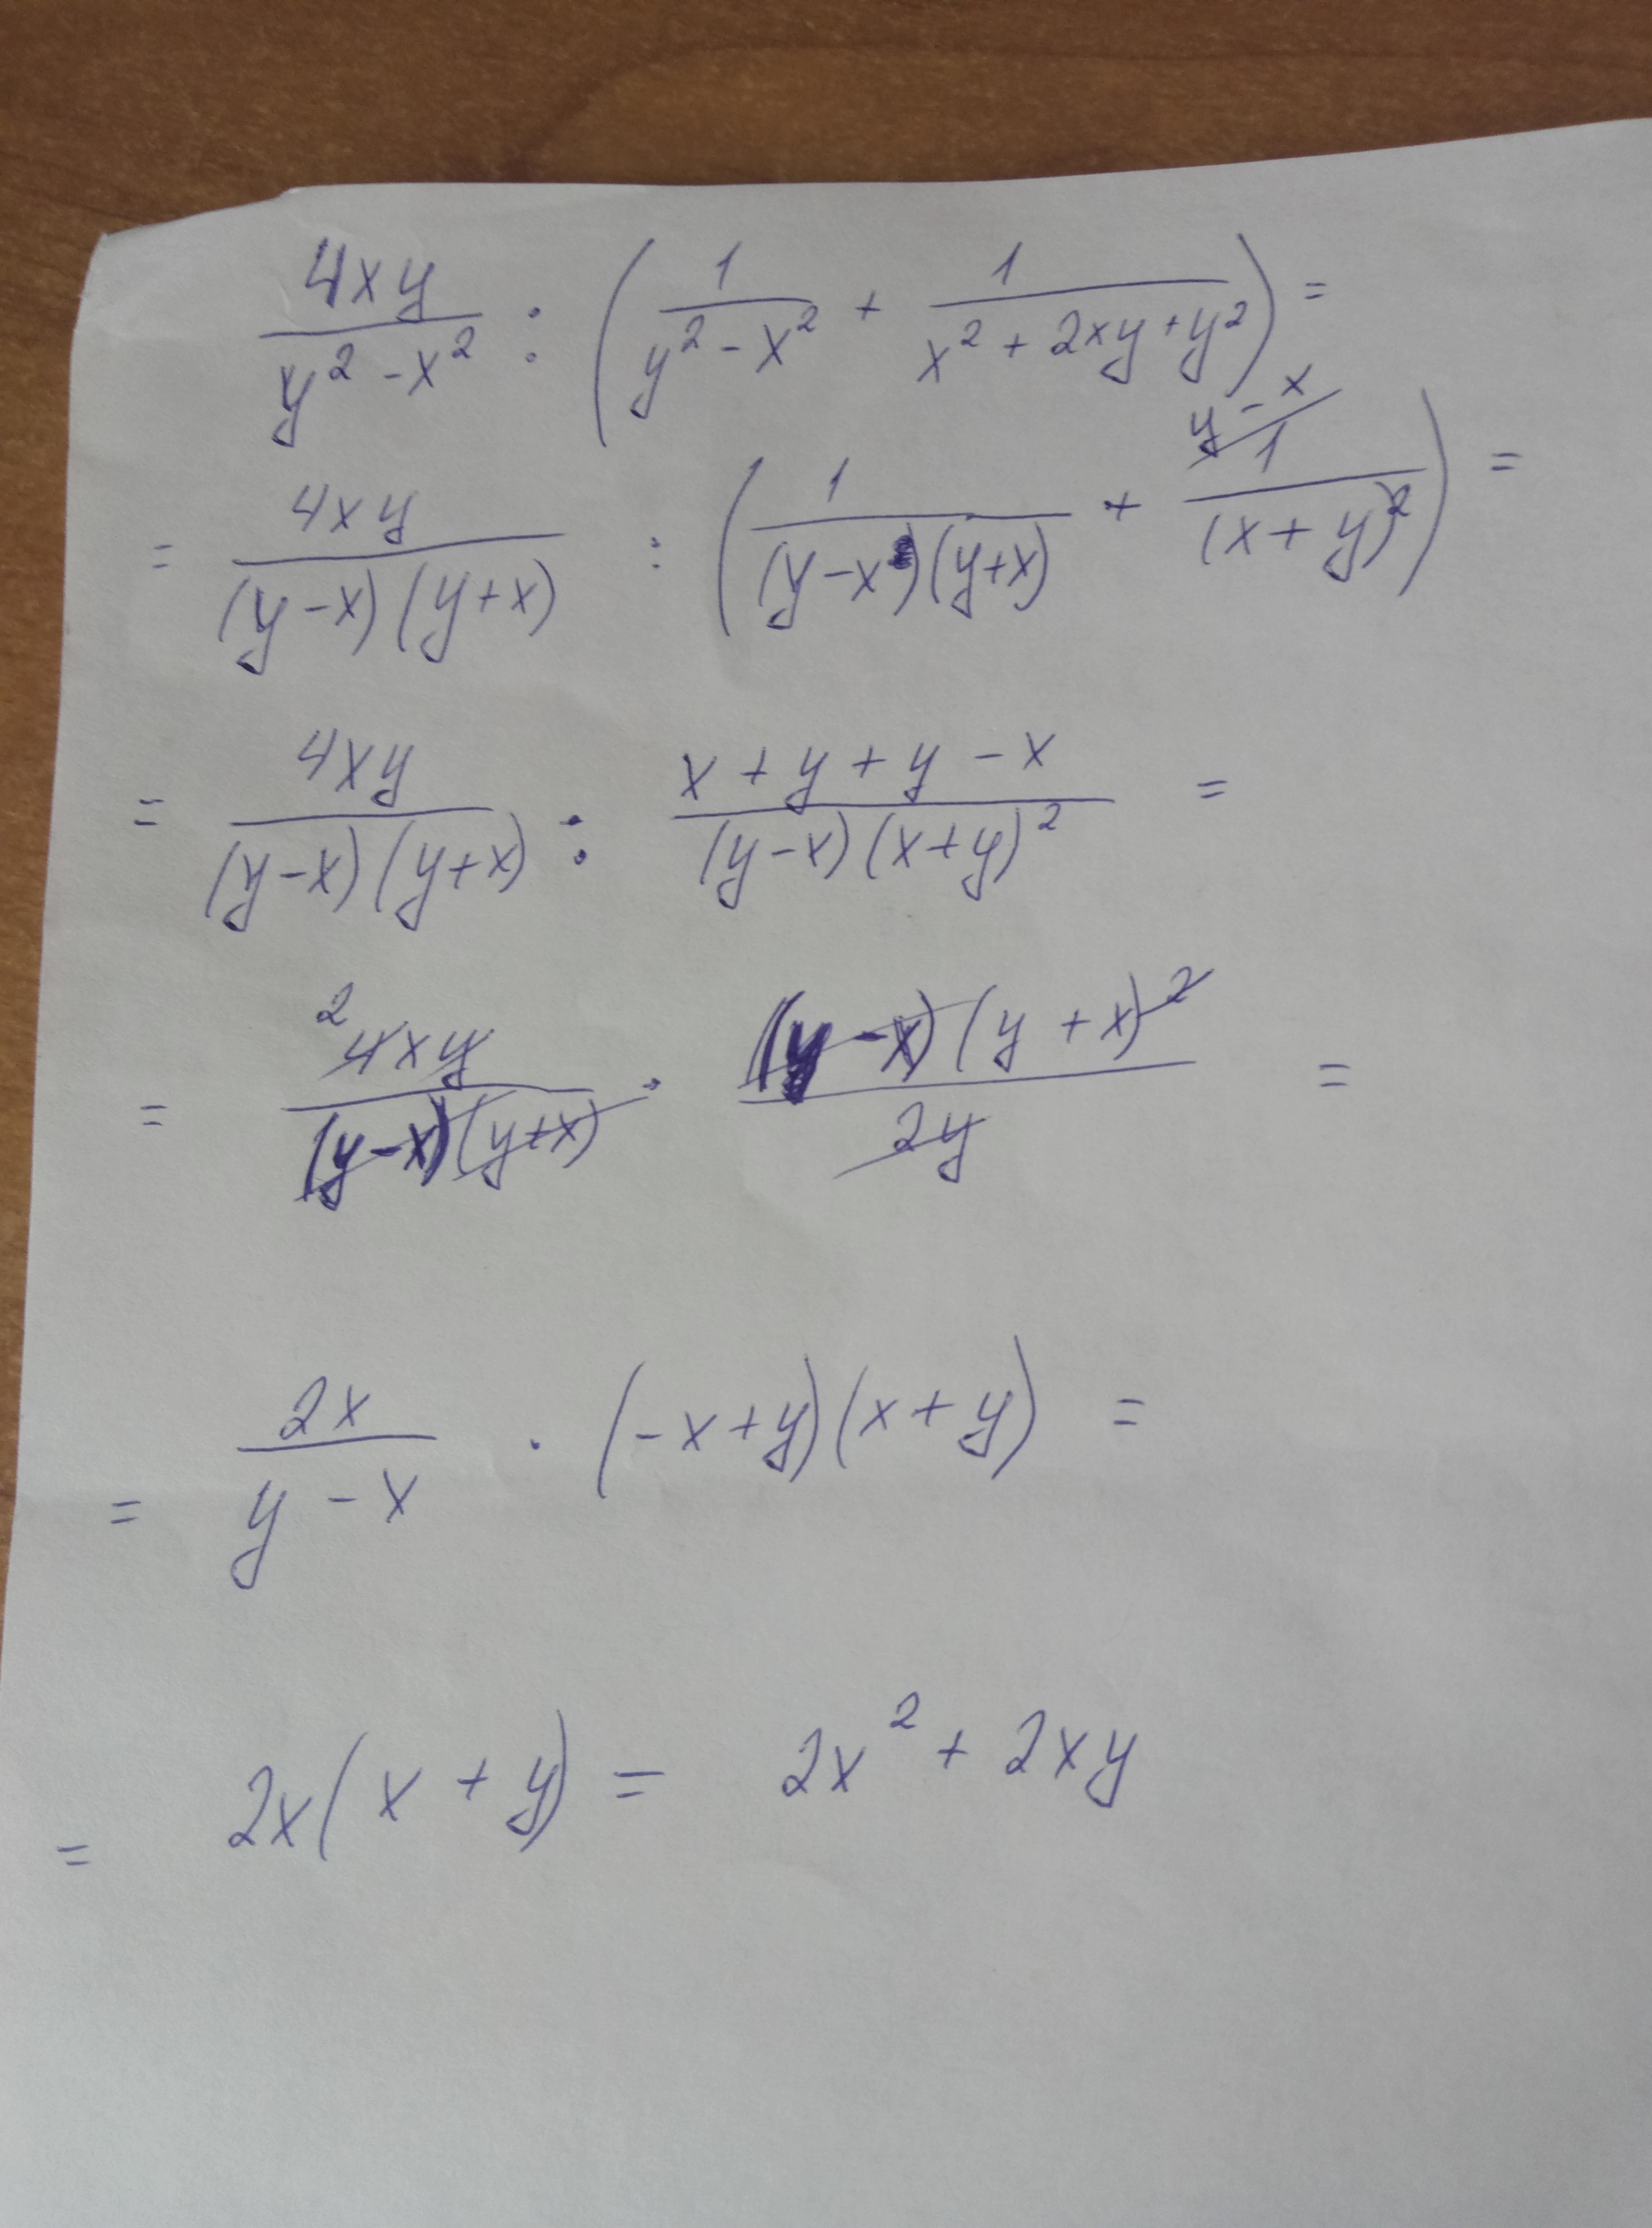 4xy / (y² - x²) : (1 / (y² - x²) + 1 / (x² + 2xy + y²)) =
= 4xy / ((y-x)(y+x)) : (1 / ((y-x)(y+x)) + y-x 1 / (x+y)²) =
= 4xy / ((y-x)(y+x)) : (x+y+y-x) / ((y-x)(x+y)²) =
= 2 4xy / ((y-x)(y+x)) · (y-x)(y+x)² / 2y =
= 2x / (y-x) · (-x+y)(x+y) =
= 2x(x+y) = 2x² + 2xy